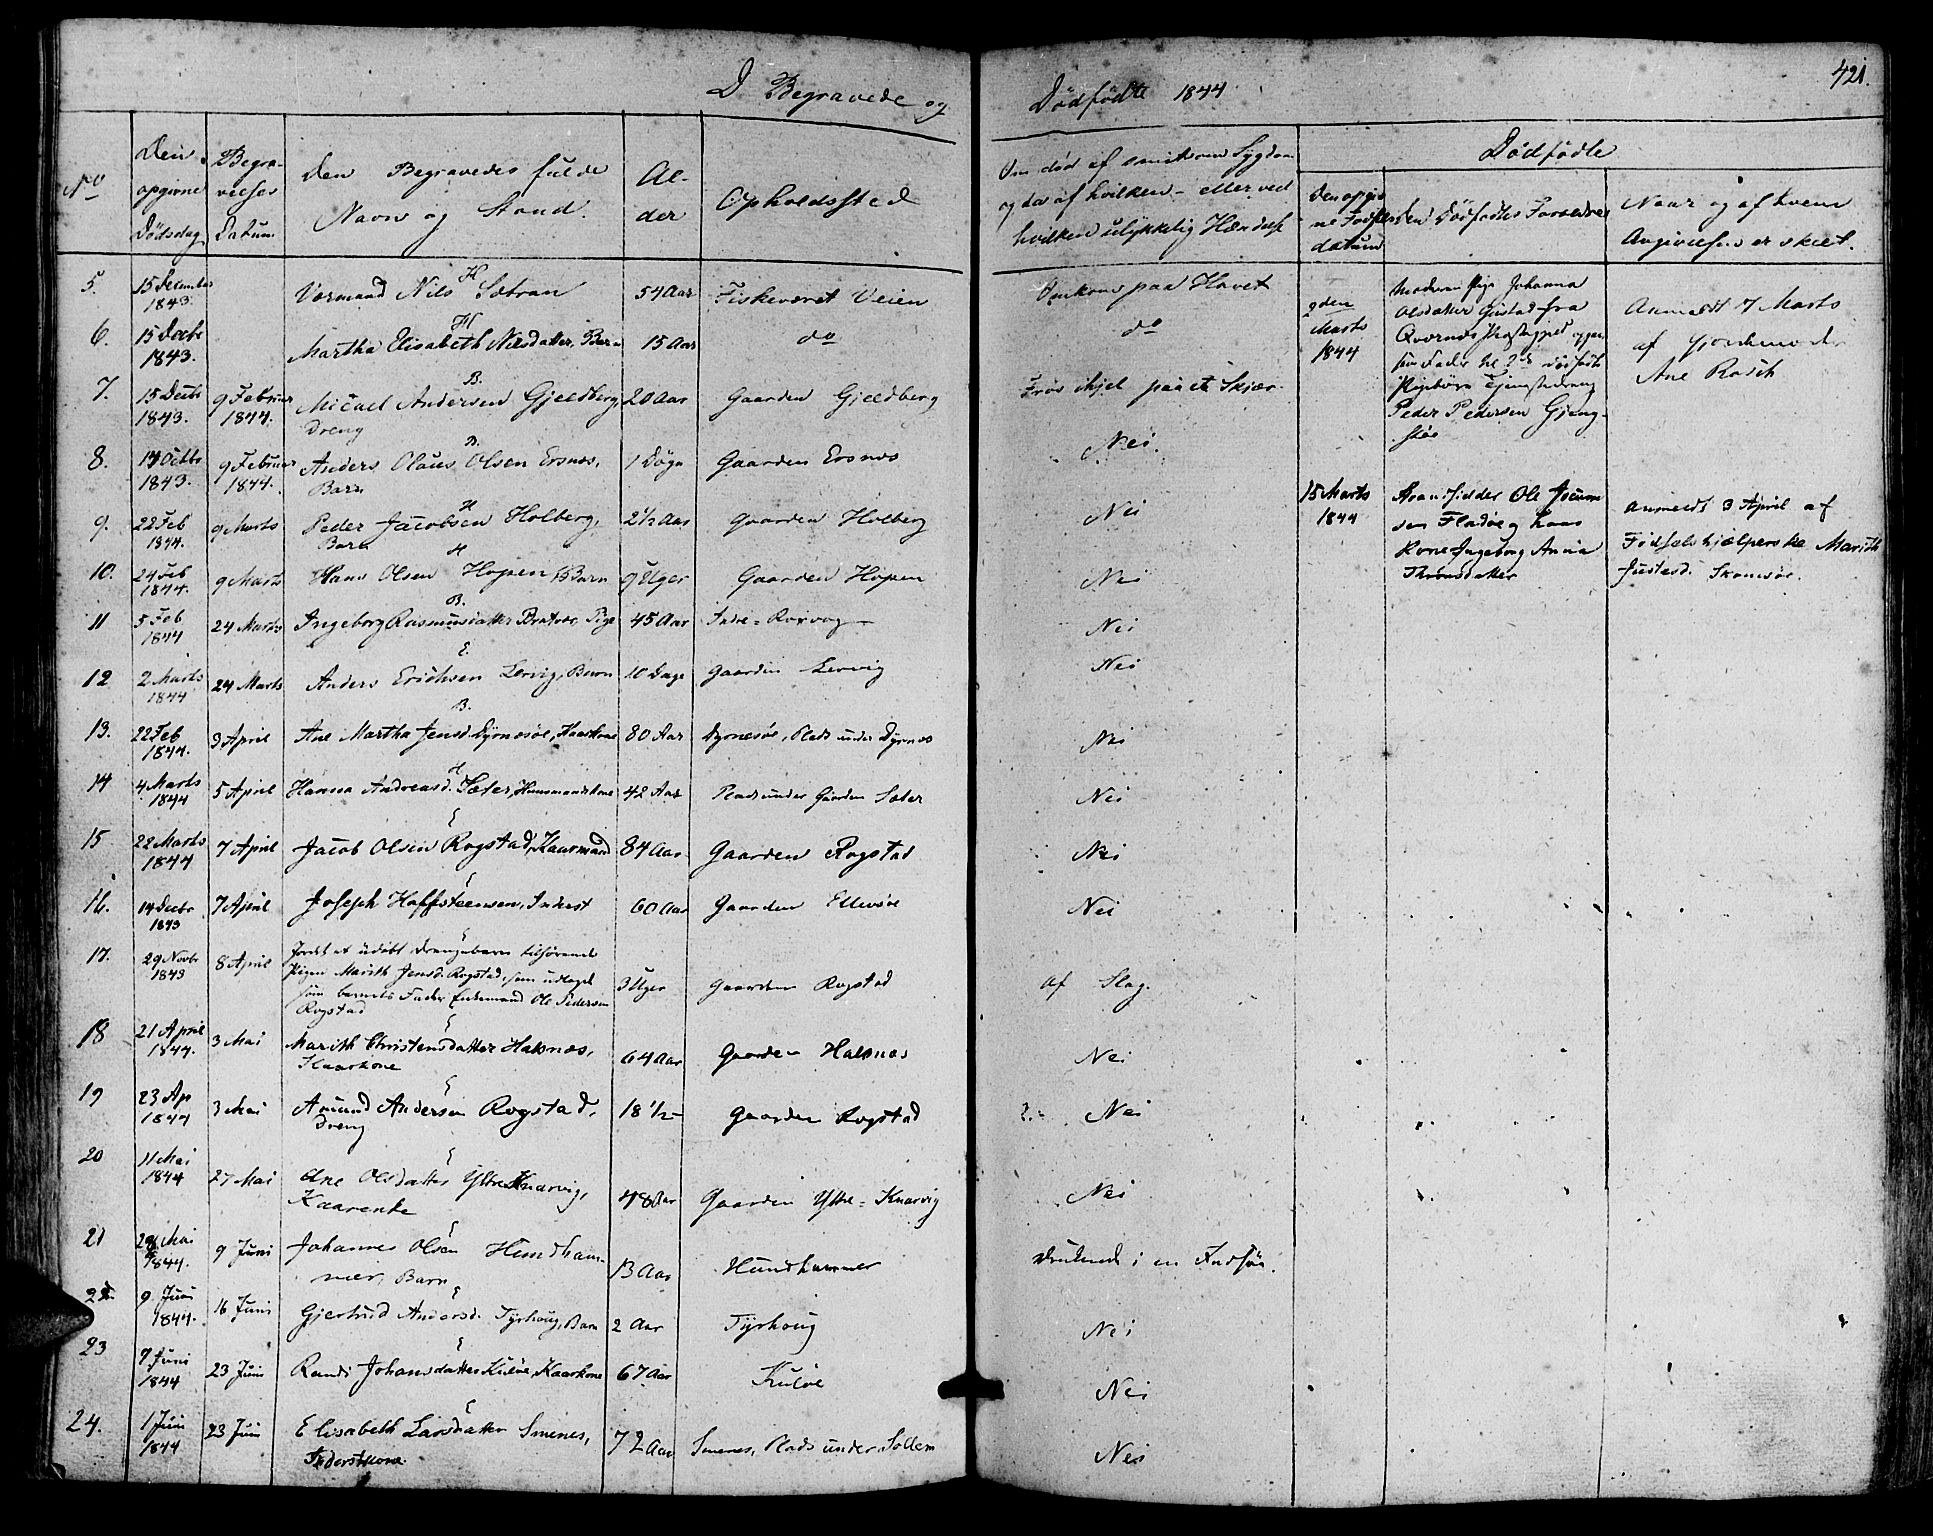 421.
D Begravede og
Dødfødte 1844
No
Den opgivne Dødsdag
Begravelses Datum
Den Begravedes fulde Navn og Stand.
Alder
Opholdssted
og da af hvilken - eller ved
hvilken ulykkelig Hændelse
Dødfødte
Den Dødfødtes Forældre
Naar og af hvem
Angivelsen er skeet.
5. 15 December 1843. H Nils Sætran 54 Aar Fiskeværet Veien Omkom paa Havet
6. 15 Decbr 1843. H Martha Elisabeth Nilsdatter, Barn 15 Aar do do
7. 15 Decbr 1843. 9 Februar 1844. B. Micael Andersen Gjeedberg, Dreng 20 Aar Gaarden Gjeedberg Frøs ihjel paa et Skjær
8. 9 Februar 1844. B. Anders Olaus Olsen Ersnæs, Barn 1 Døgn Gaarden Ersnæs Nei.
9. 22 Feb 1844. 9 Marts H Peder Jacobsen Holberg, Barn 2 1/2 Aar Gaarden Holberg Nei
10. 24 Feb 1844. 9 Marts H Hans Olsen Hopen, Barn 9 Uger Gaarden Hopen Nei
11 5 Feb 1844 24 Marts B. Ingeborg Rasmusdatter Pige 45 Aar Indre- Nei
12 2 Marts 1844 24 Marts E. Anders Erichsen Lervig, Barn 10 Dage Gaarden Lervig Nei
13. 22 Feb 1844. 3 April B. Ane Martha Jensd. Dyrnesøe, Kaarkone 80 Aar Dyrnesøe, Plads under Dyrnæs Nei
14 4 Marts 1844 5 April H Hanna Andreasd. Sæter, Huusmandskone 42 Aar Plads under Gaarden Sæter Nei
15 22 Marts 1844 7 April E Jacob Olsen Rogstad, Kaarmand 84 Aar Gaarden Rogstad Nei
16. 14 Decbr 1843 7 April E Joseph Hoffsteensen, 60 Aar Gaarden Nei
17. 29 Novbr 1843 8 April E Jordet et udøbt Drengebarn tilhørende
Pigen Marith Jensd. Rogstad, som udlagde
som barnets Fader Enkemand Ole Pedersen
Rogstad 3 Uger Gaarden Rogstad Af Slag.
18 21 April 1844. 3 Mai E Marith Christensdatter Halsnæs, Kaarkone 64 Aar Gaarden Halsnæs Nei
19 23 Ap 1844 3 Mai E Amund Andersen Rogstad, Dreng 18 1/2 - Gaarden Rogstad Nei
20 11 Mai 1844 27 Mai E Ane Olsdatter Ytre Knarvig, Kaarenke 48 Aar Gaarden Ytre-Knarvig Nei
21 Mai 1844. 9 Juni E Johannes Olsen Hundhammer, Barn 13 Aar Hundhammer Druknede i en
22 9 Juni 1844. 16 Juni E Gjertrud Andersd. Tyrhoug, Barn 2 Aar Tyrhoug Nei
23 7 Juni 1844 23 Juni E Randi Johansdatter Kuløe, Kaarkone 67 Aar Kuløe Nei
24. 1 Juni 1844 23 Juni E Elisabeth Larsdatter Smenes, 72 Aar Smenes, Plads under Sollem Nei
9den Marts 1844
Moderen Pige Johanna
Olsdatter Gustad fra
Qvernæs Præstegjeld
Peder Pedersen
Anmeldt 7 Marts
af Gjordemoder
Ane Rasch
15 Marts 1844
Ole
Fladøe og hans
Kone Ingeborg Anna
Thronsdatter
Anmeldt 3 April af
Fødselshjælperske Marith
Justesd. Skomsøe.